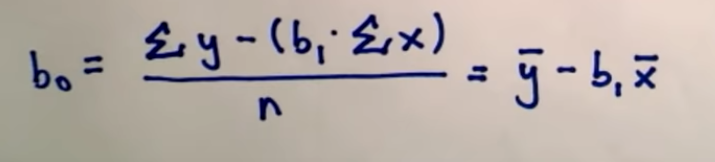 b₀ = (Σy - (b₁ · Σx)) / n = ȳ - b₁x̄